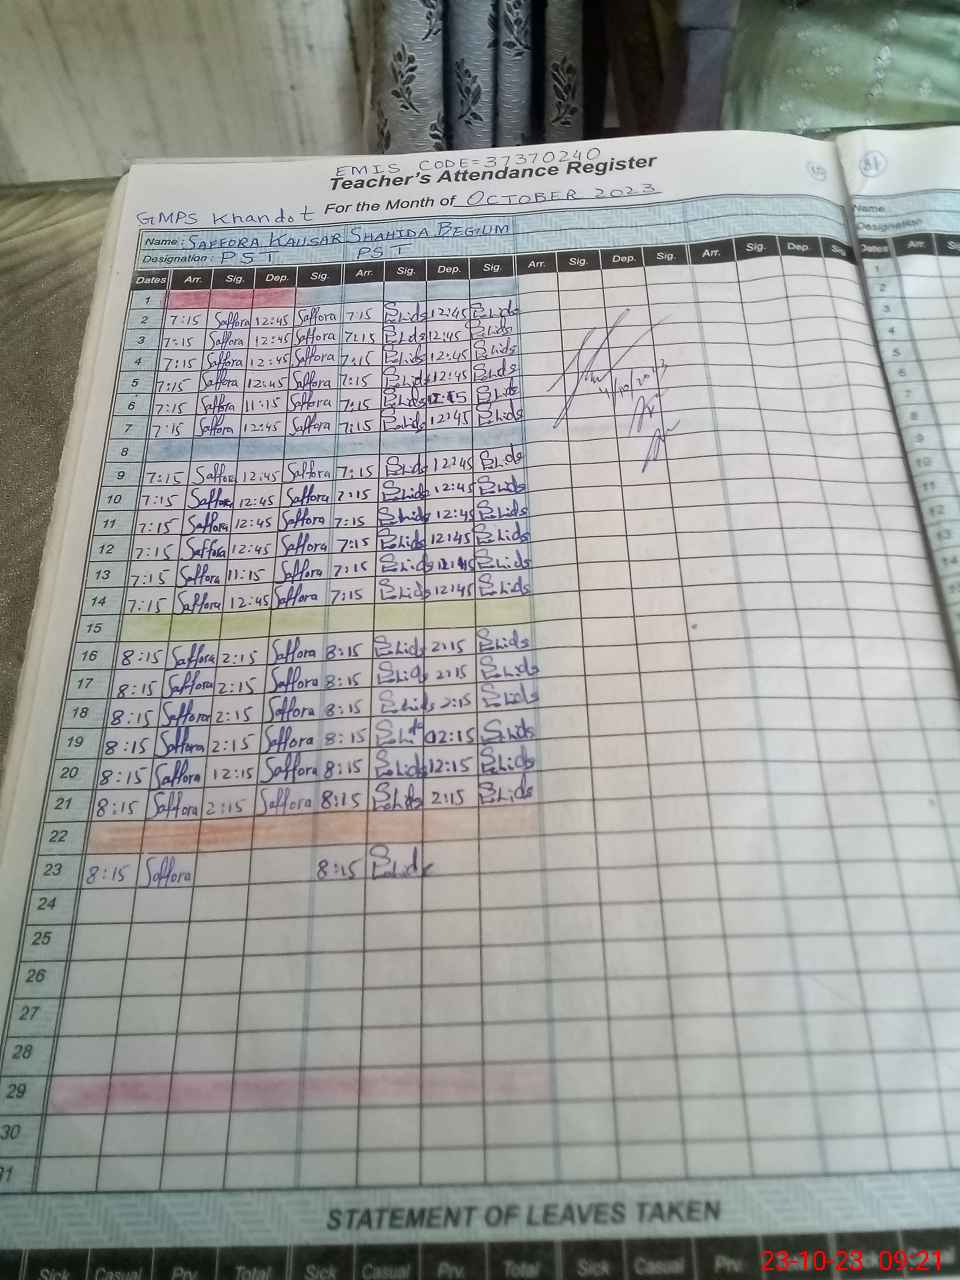 EMIS CODE=37370240
Teacher's Attendance Register
10 18
GMPS Khandot For the Month of OCTOBER 2023
Name: SAFFORA KAUSAR SHAHIDA BEGUM Name
Designation: PST PST Designation
Dates Arr. Sig. Dep. Sig. Arr. Sig. Dep. Sig. Arr. Sig. Dep. Sig. Arr. Sig. Dep. Sig. Dates Arr.
1
2 7:15 Saffora 12:45 Saffora 7:15 12:45
3 7:15 Saffora 12:45 Saffora 7:15 12:45
4 7:15 Saffora 12:45 Saffora 7:15 12:45
5 7:15 Saffora 12:45 Saffora 7:15 12:45
6 7:15 Saffora 11:15 Saffora 7:15
7 7:15 Saffora 12:45 Saffora 7:15 12:45
8
9 7:15 Saffora 12:45 Saffora 7:15 12:45
10 7:15 Saffora 12:45 Saffora 7:15 12:45
11 7:15 Saffora 12:45 Saffora 7:15 12:45
12 7:15 Saffora 12:45 Saffora 7:15 12:45
13 7:15 Saffora 11:15 Saffora 7:15
14 7:15 Saffora 12:45 Saffora 7:15 12:45
15
16 8:15 Saffora 2:15 Saffora 8:15 2:15
17 8:15 Saffora 2:15 Saffora 8:15 2:15
18 8:15 Saffora 2:15 Saffora 8:15 2:15
19 8:15 Saffora 2:15 Saffora 8:15 02:15
20 8:15 Saffora 12:15 Saffora 8:15 12:15
21 8:15 Saffora 2:15 Saffora 8:15 2:15
22
23 8:15 Saffora 8:15
24
25
26
27
28
29
30
31
STATEMENT OF LEAVES TAKEN
Sick Casual Prv. Total Sick Casual Prv. Total Sick Casual Prv.
23-10-23 09:21